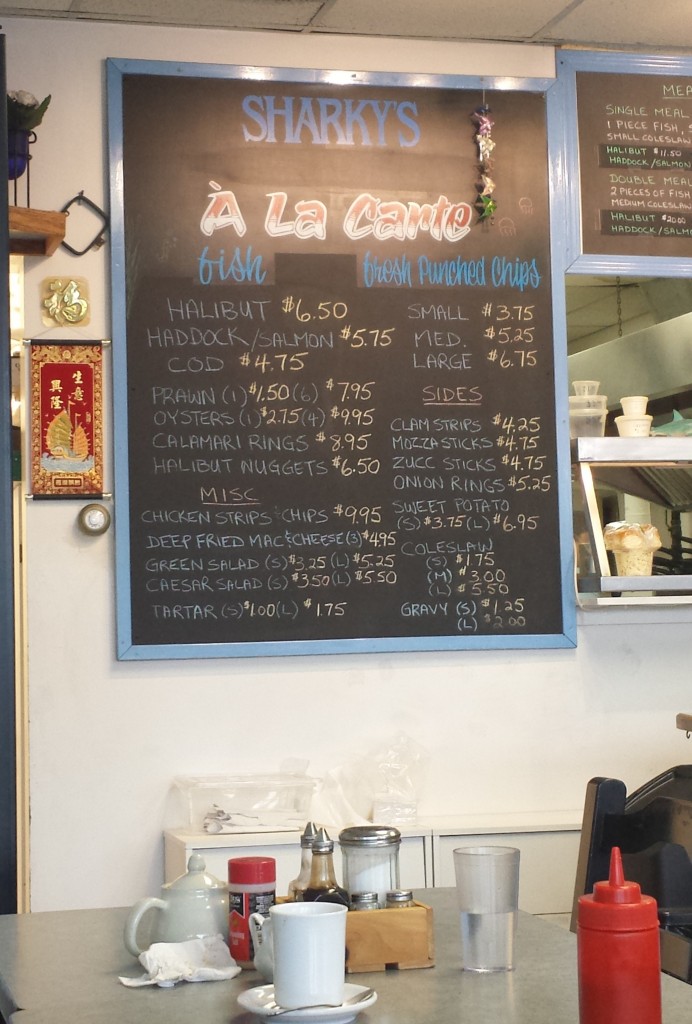 SHARKY'S
À La Carte
fish
fresh Punched Chips
HALIBUT $6.50
HADDOCK/SALMON $5.75
COD $4.75
PRAWN (1) $1.50 (6) $7.95
OYSTERS (1) $2.75 (4) $9.95
CALAMARI RINGS $8.95
HALIBUT NUGGETS $6.50
MISC
CHICKEN STRIPS & CHIPS $9.95
DEEP FRIED MAC & CHEESE (3) $4.95
GREEN SALAD (S) $3.25 (L) $5.25
CAESAR SALAD (S) $3.50 (L) $5.50
TARTAR (S) $1.00 (L) $1.75
SMALL $3.75
MED. $5.25
LARGE $6.75
SIDES
CLAM STRIPS $4.25
MOZZA STICKS $4.75
ZUCC STICKS $4.75
ONION RINGS $5.25
SWEET POTATO
(S) $3.75 (L) $6.95
COLESLAW
(S) $1.75
(M) $3.00
(L) $5.50
GRAVY (S) $1.25
(L) $2.00
SINGLE MEAL
1 PIECE FISH,
SMALL COLESLAW
HALIBUT $11.50
HADDOCK/SALMON
DOUBLE MEAL
2 PIECES OF FISH
MEDIUM COLESLAW
HALIBUT $20.00
HADDOCK/SALM
福
生意
興隆